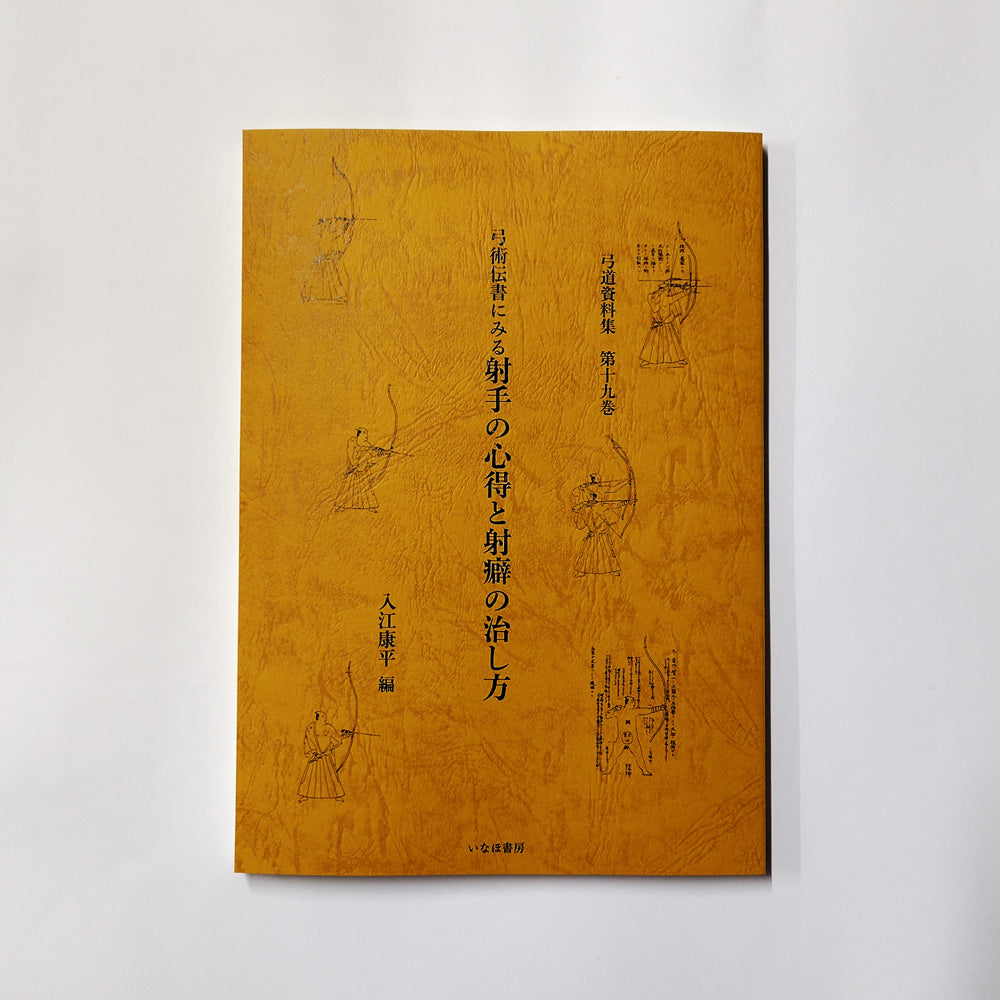 弓道資料集 第十九巻
弓術伝書にみる射手の心得と射癖の治し方
入江康平 編
いなほ書房